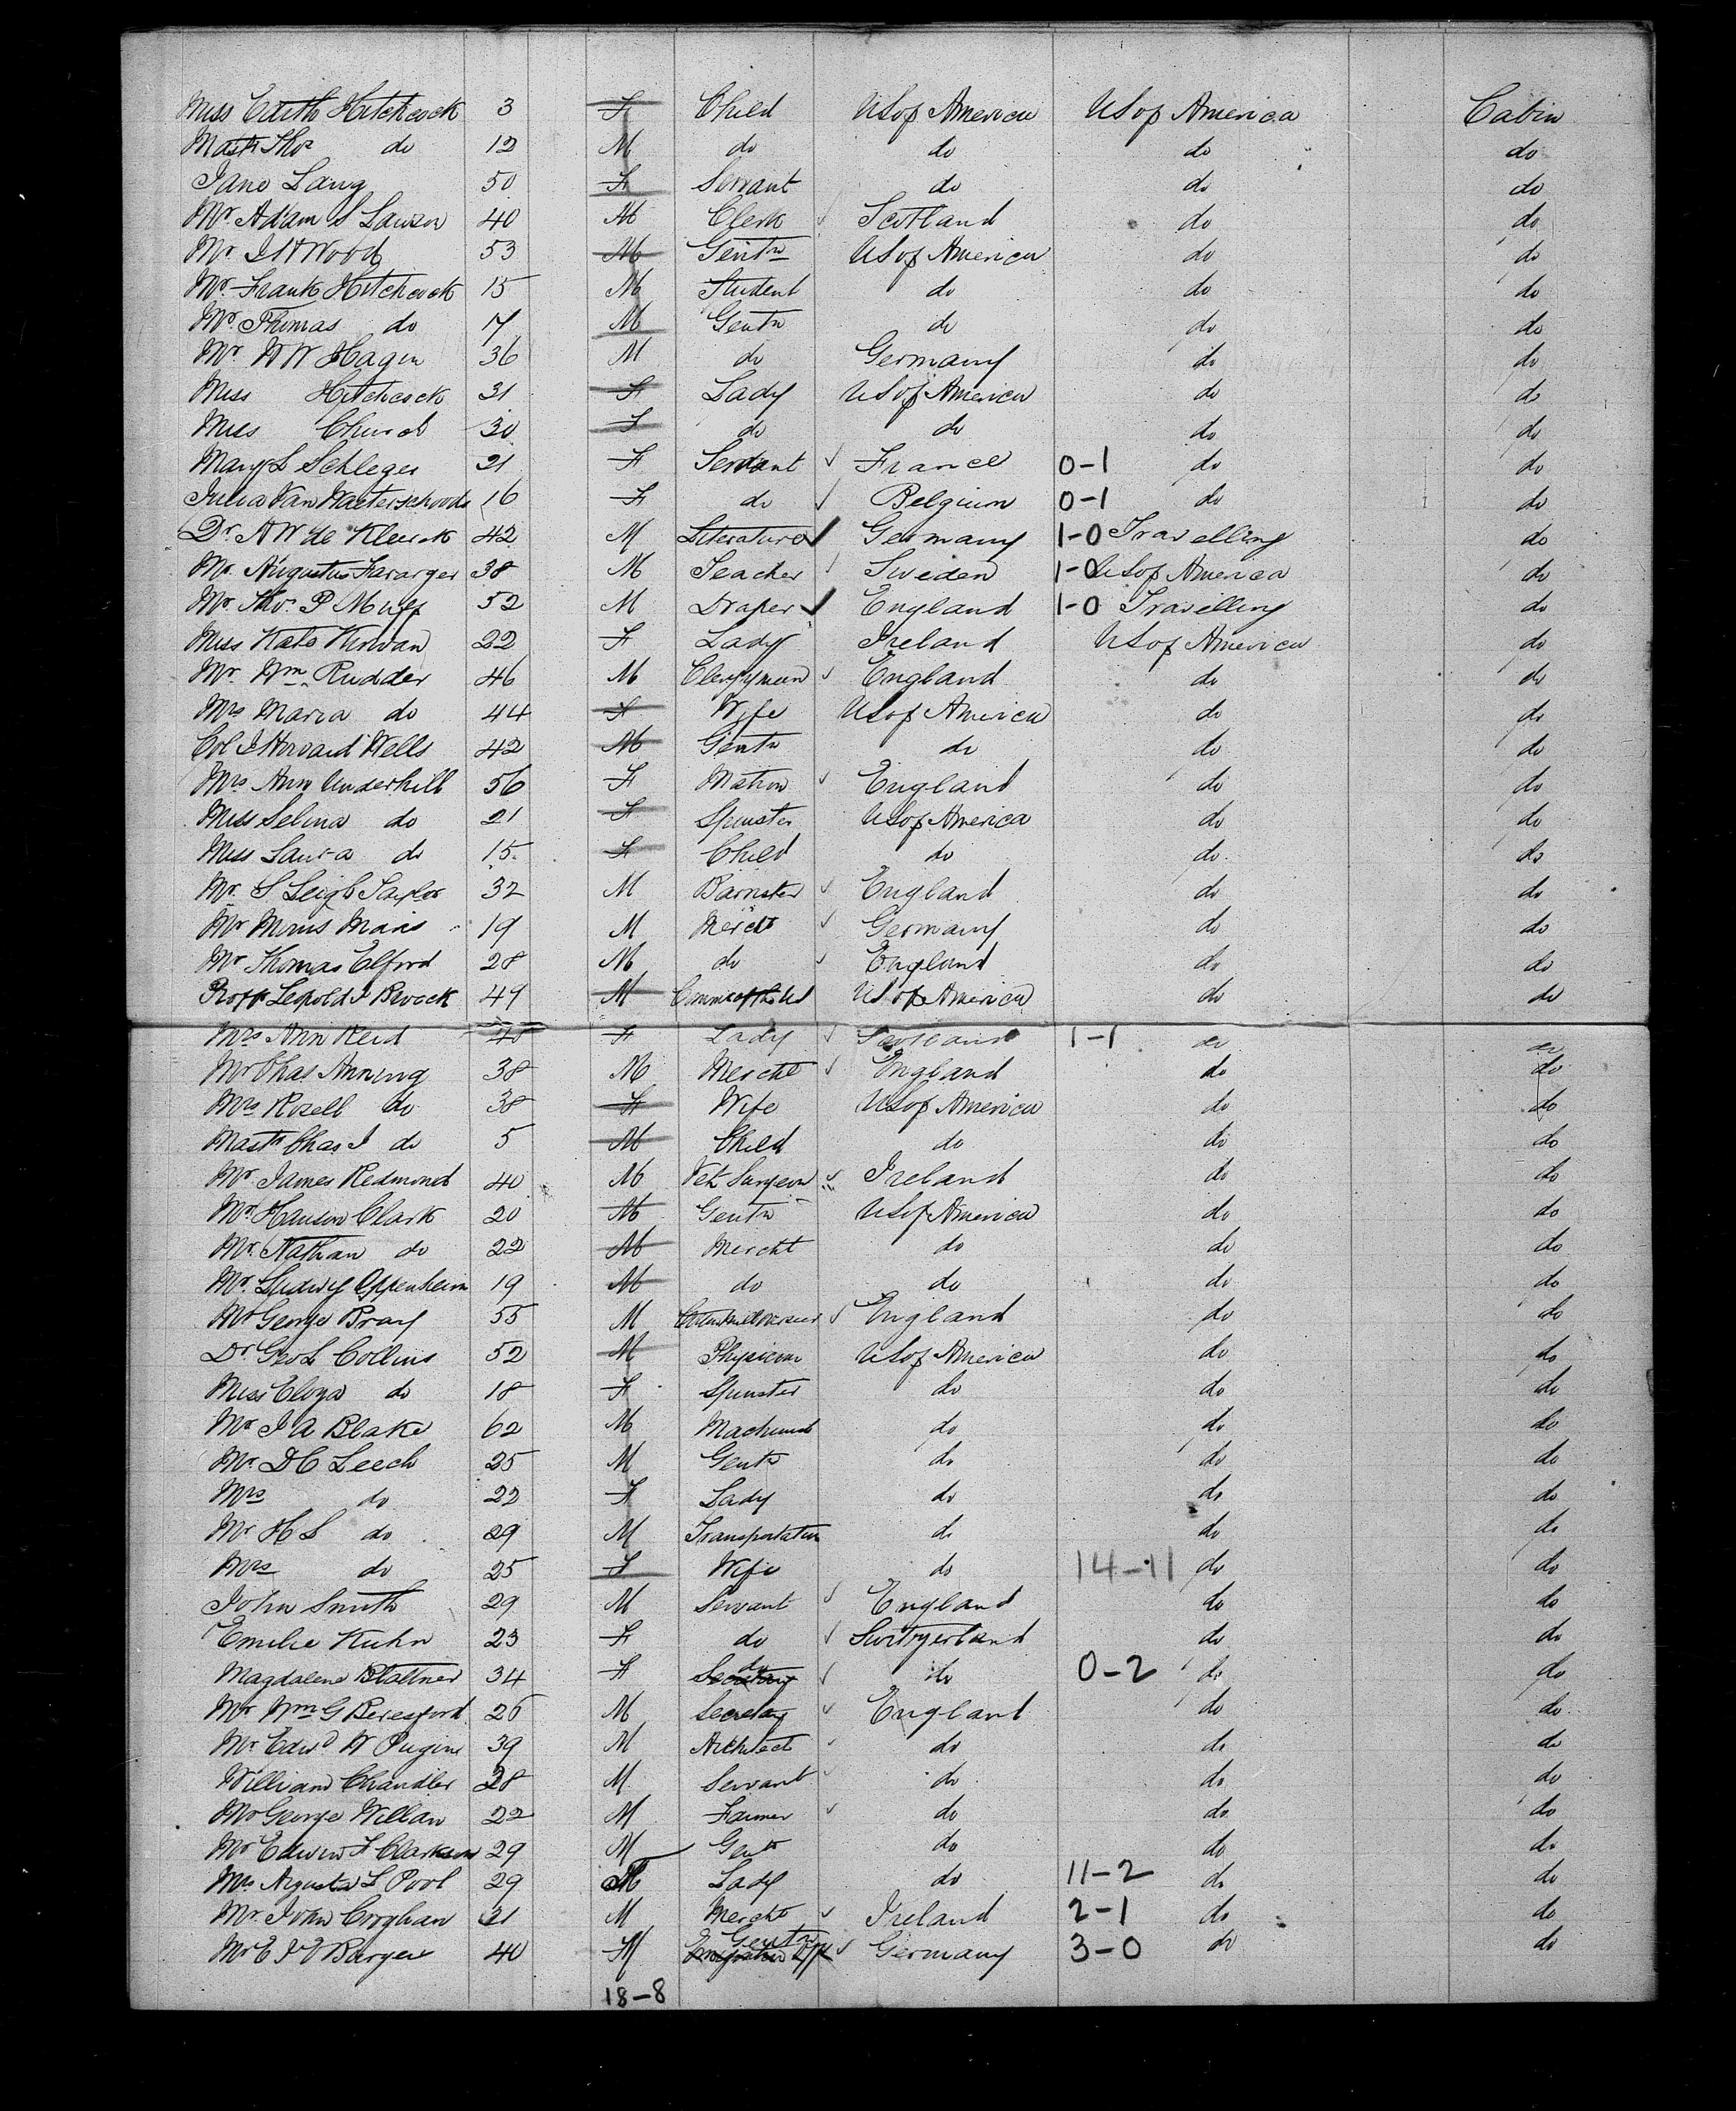 Miss Edith Hitchcock 3 F Child US of America US of America Cabin
Mastr Thos do 12 M do do do do
Jane Lang 50 F Servant do do do
Mr Adam S Lawson 40 M Clerk Scotland do do
Mr J H Wood 53 M Gentn US of America do do
Mr Frank Hitchcock 15 M Student do do do
Mr Thomas do 17 M Gentn do do do
Mr W W Hagen 36 M do Germany do do
Miss Hitchcock 31 F Lady US of America do do
Miss Church 30 F do do do do
Mary L Schleger 21 F Servant France 0-1 do do
Julia Van 16 F do Belgium 0-1 do do
Dr A W de Kleurck 42 M Literature Germany 1-0 Travelling do
Mr Augustus Fararger 38 M Teacher Sweden 1-0 US of America do
Mr Thos P Muff 52 M Draper England 1-0 Travelling do
Miss Kate Kirwan 22 F Lady Ireland US of America do
Mr Wm Rudder 46 M Clergyman England do do
Mrs Maria do 44 F Wife US of America do do
Col J Howard Wells 42 M Gentn do do do
Mrs Ann Underhill 56 F Matron England do do
Miss Selina do 21 F Spinster US of America do do
Miss Laura do 15 F Child do do do
Mr S Leigh Taylor 32 M Barrister England do do
Mr Maris 19 M Mercht Germany do do
Mr Thomas Elford 28 M do England do do
Leopold J 47 M US of America do do
Mrs Ann Reid 48 F Lady Scotland 1-1 do do
Mr Chas Anning 38 M Mercht England do do
Mrs Rozell do 38 F Wife US of America do do
Mastr Chas J do 5 M Child do do do
Mr James Redmond 40 M Vet Surgeon Ireland do do
Mr Hanson Clark 20 M Gentn US of America do do
Mr Nathan do 22 M Mercht do do do
Mr Ludwig Oppenheim 19 M do do do do
Mr George Bray 55 M England do do
Dr Geo L Collins 52 M Physician US of America do do
Miss Eloya do 18 F Spinster do do do
Mr J A Blake 62 M Machinist do do do
Mr D C Leech 25 M Gentn do do do
Mrs do 22 F Lady do do do
Mr H L do 29 M Transportation do do do
Mrs do 25 F Wife do 14-11 do do
John Smith 29 M Servant England do do
Emilie Kuhn 23 F do Switzerland do do
Magdalene Blattner 34 F do Secretary do 0-2 do do
Mr Wm G Beresford 26 M Secretary England do do
Mr Edwd W Pugine 39 M Architect do do do
William Chandler 28 M Servant do do do
Mr George Willan 22 M Farmer do do do
Mr Edwin F Clarkson 29 M Gent do do do
Mrs Augusta L Pool 29 F Lady do 11-2 do do
Mr John Croghan 21 M Mercht Ireland 2-1 do do
Mr E J V Burger 40 M Gentn Germany 3-0 do do
18-8